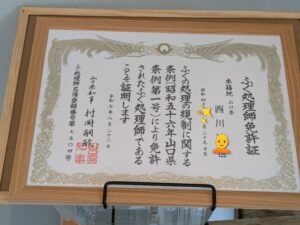 ふぐ処理師免許証
本籍地 山口県
西川
昭和
月二十九日生
ふぐの処理の規制に関する
条例(昭和五十六年山口県
条例第一号)により免許
されたふぐ処理師である
ことを証明します
令和七年八月二十二日
山口県知事 村岡嗣政
ふぐ処理師名簿登録番号第七五〇四号